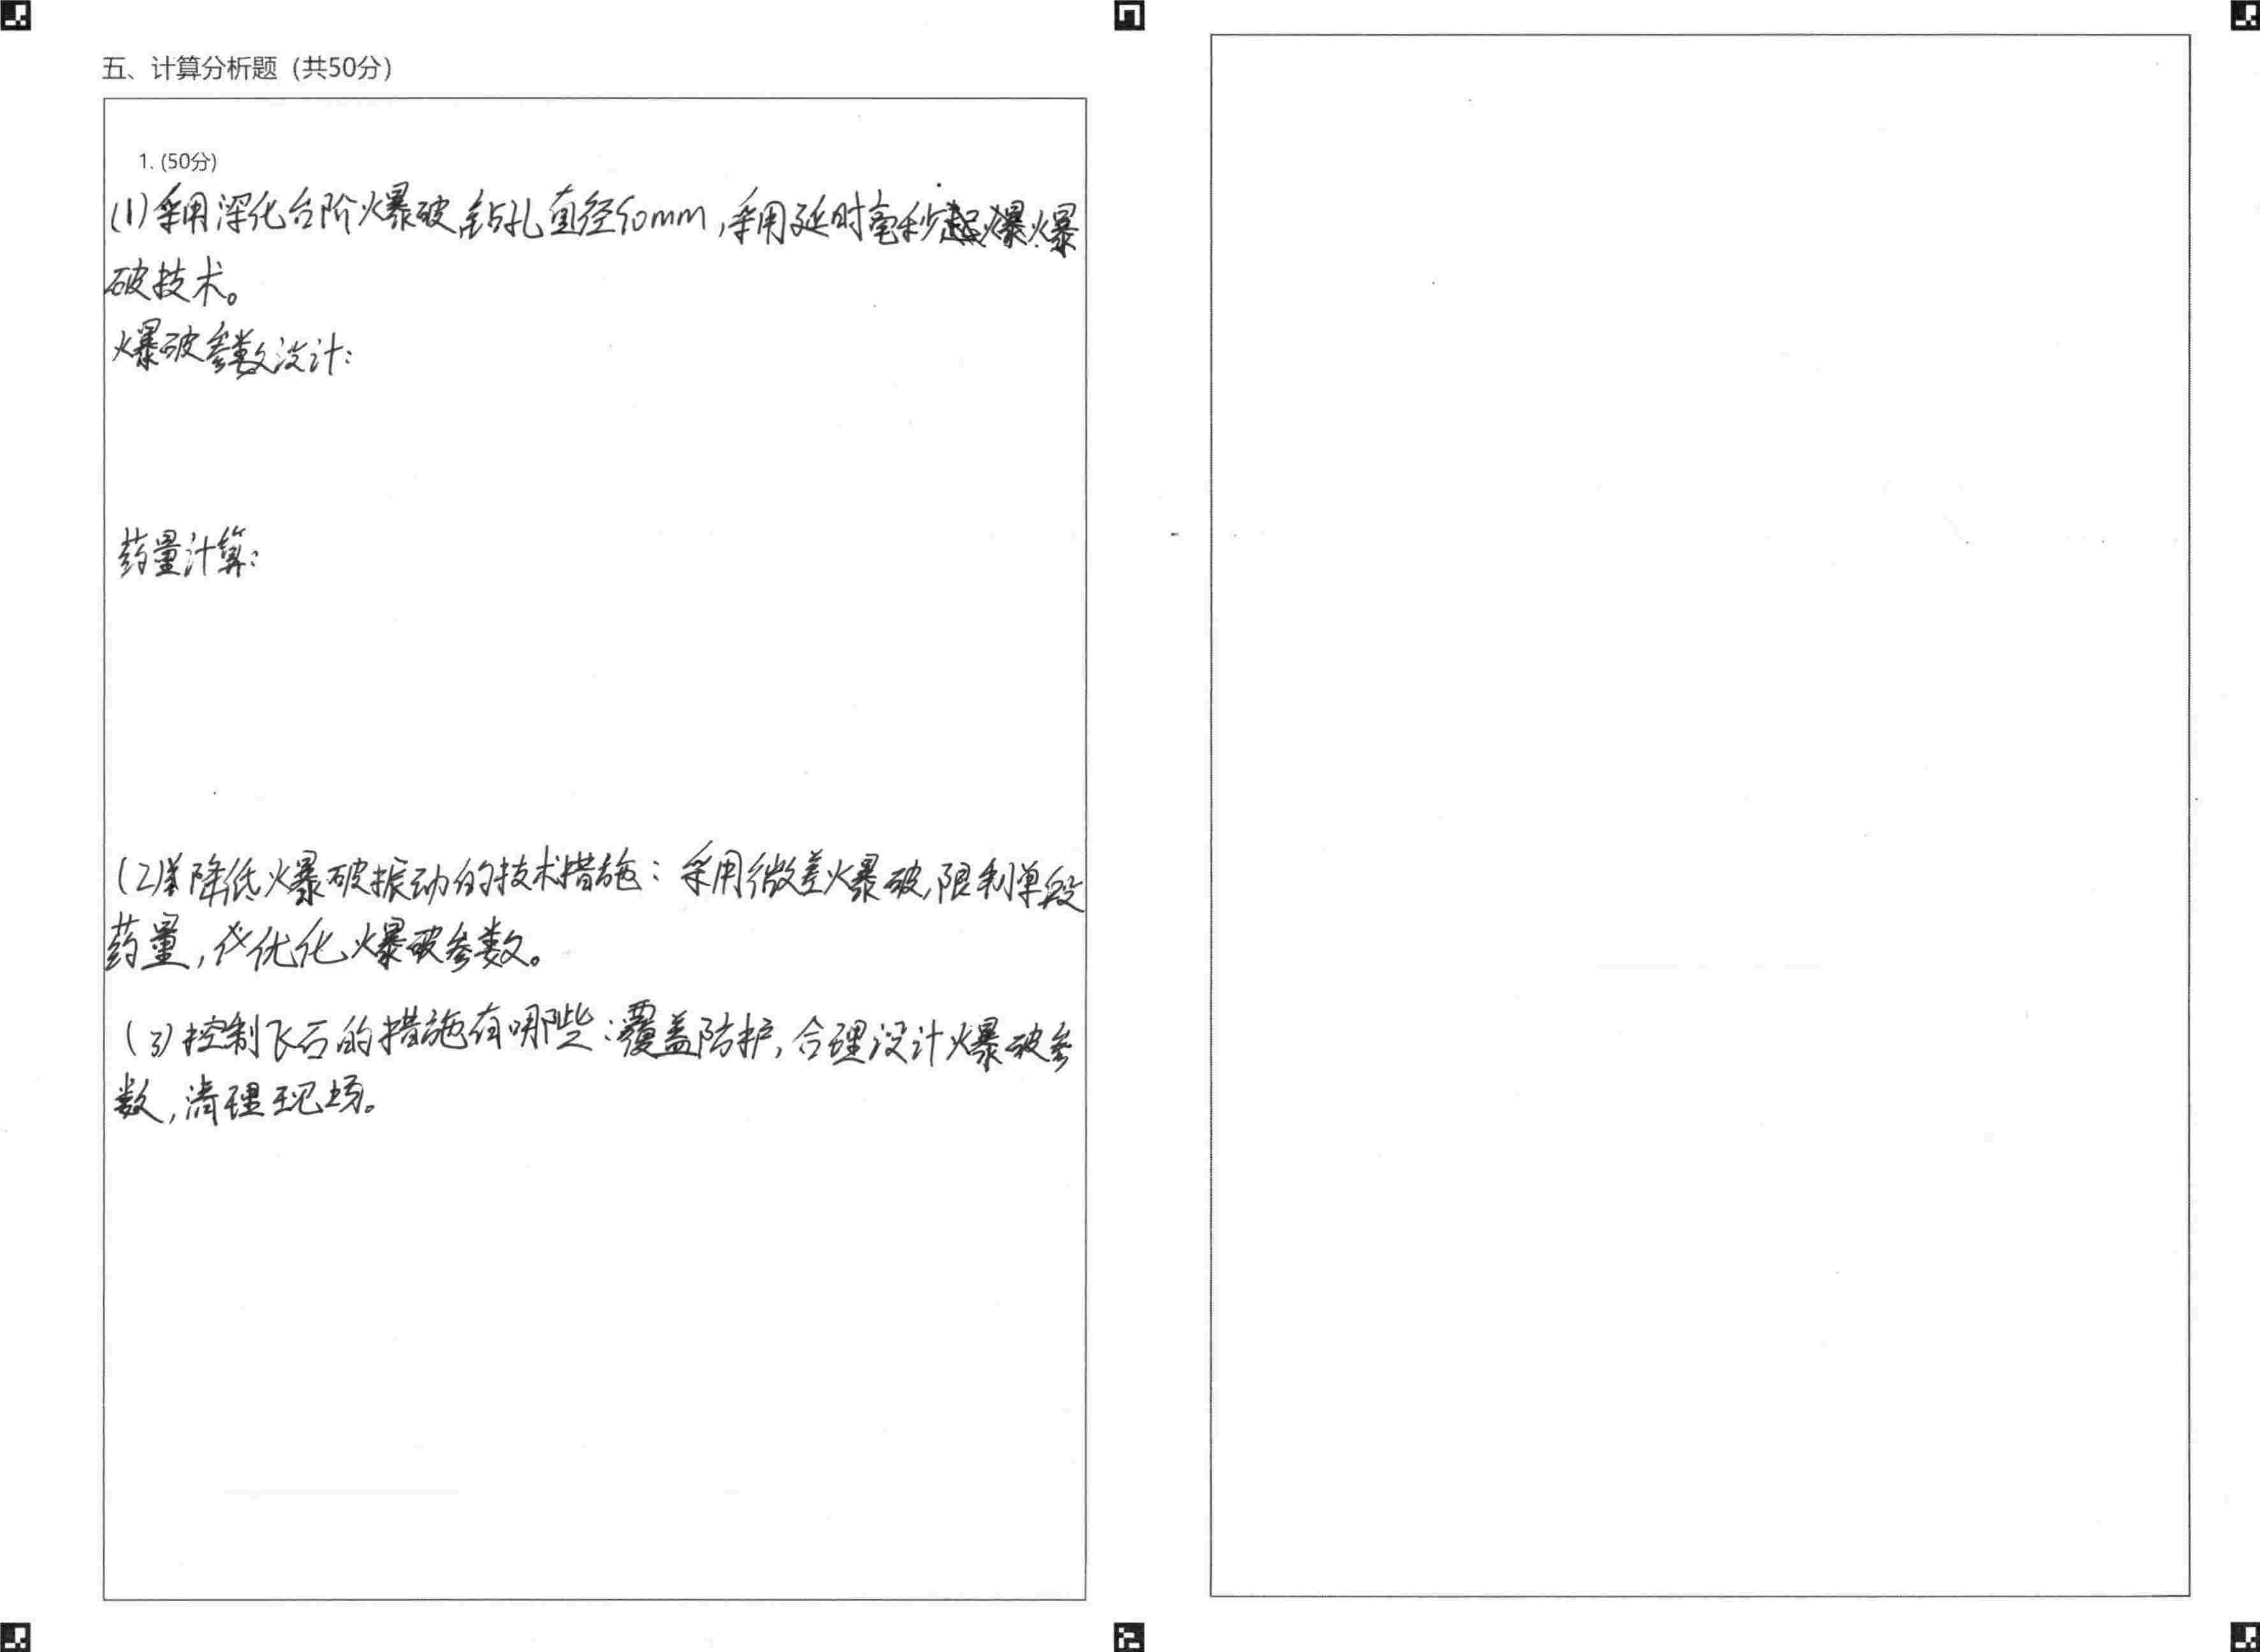 五、计算分析题（共50分）
1. (50分)
(1)采用深化台阶爆破,钻孔直径90mm,采用延时毫秒起爆爆
破技术。
爆破参数设计:
药量计算:
(2)降低爆破振动的技术措施: 采用微差爆破,限制单段
药量,优化爆破参数。
(3)控制飞石的措施有哪些:覆盖防护,合理设计爆破参
数,清理现场。